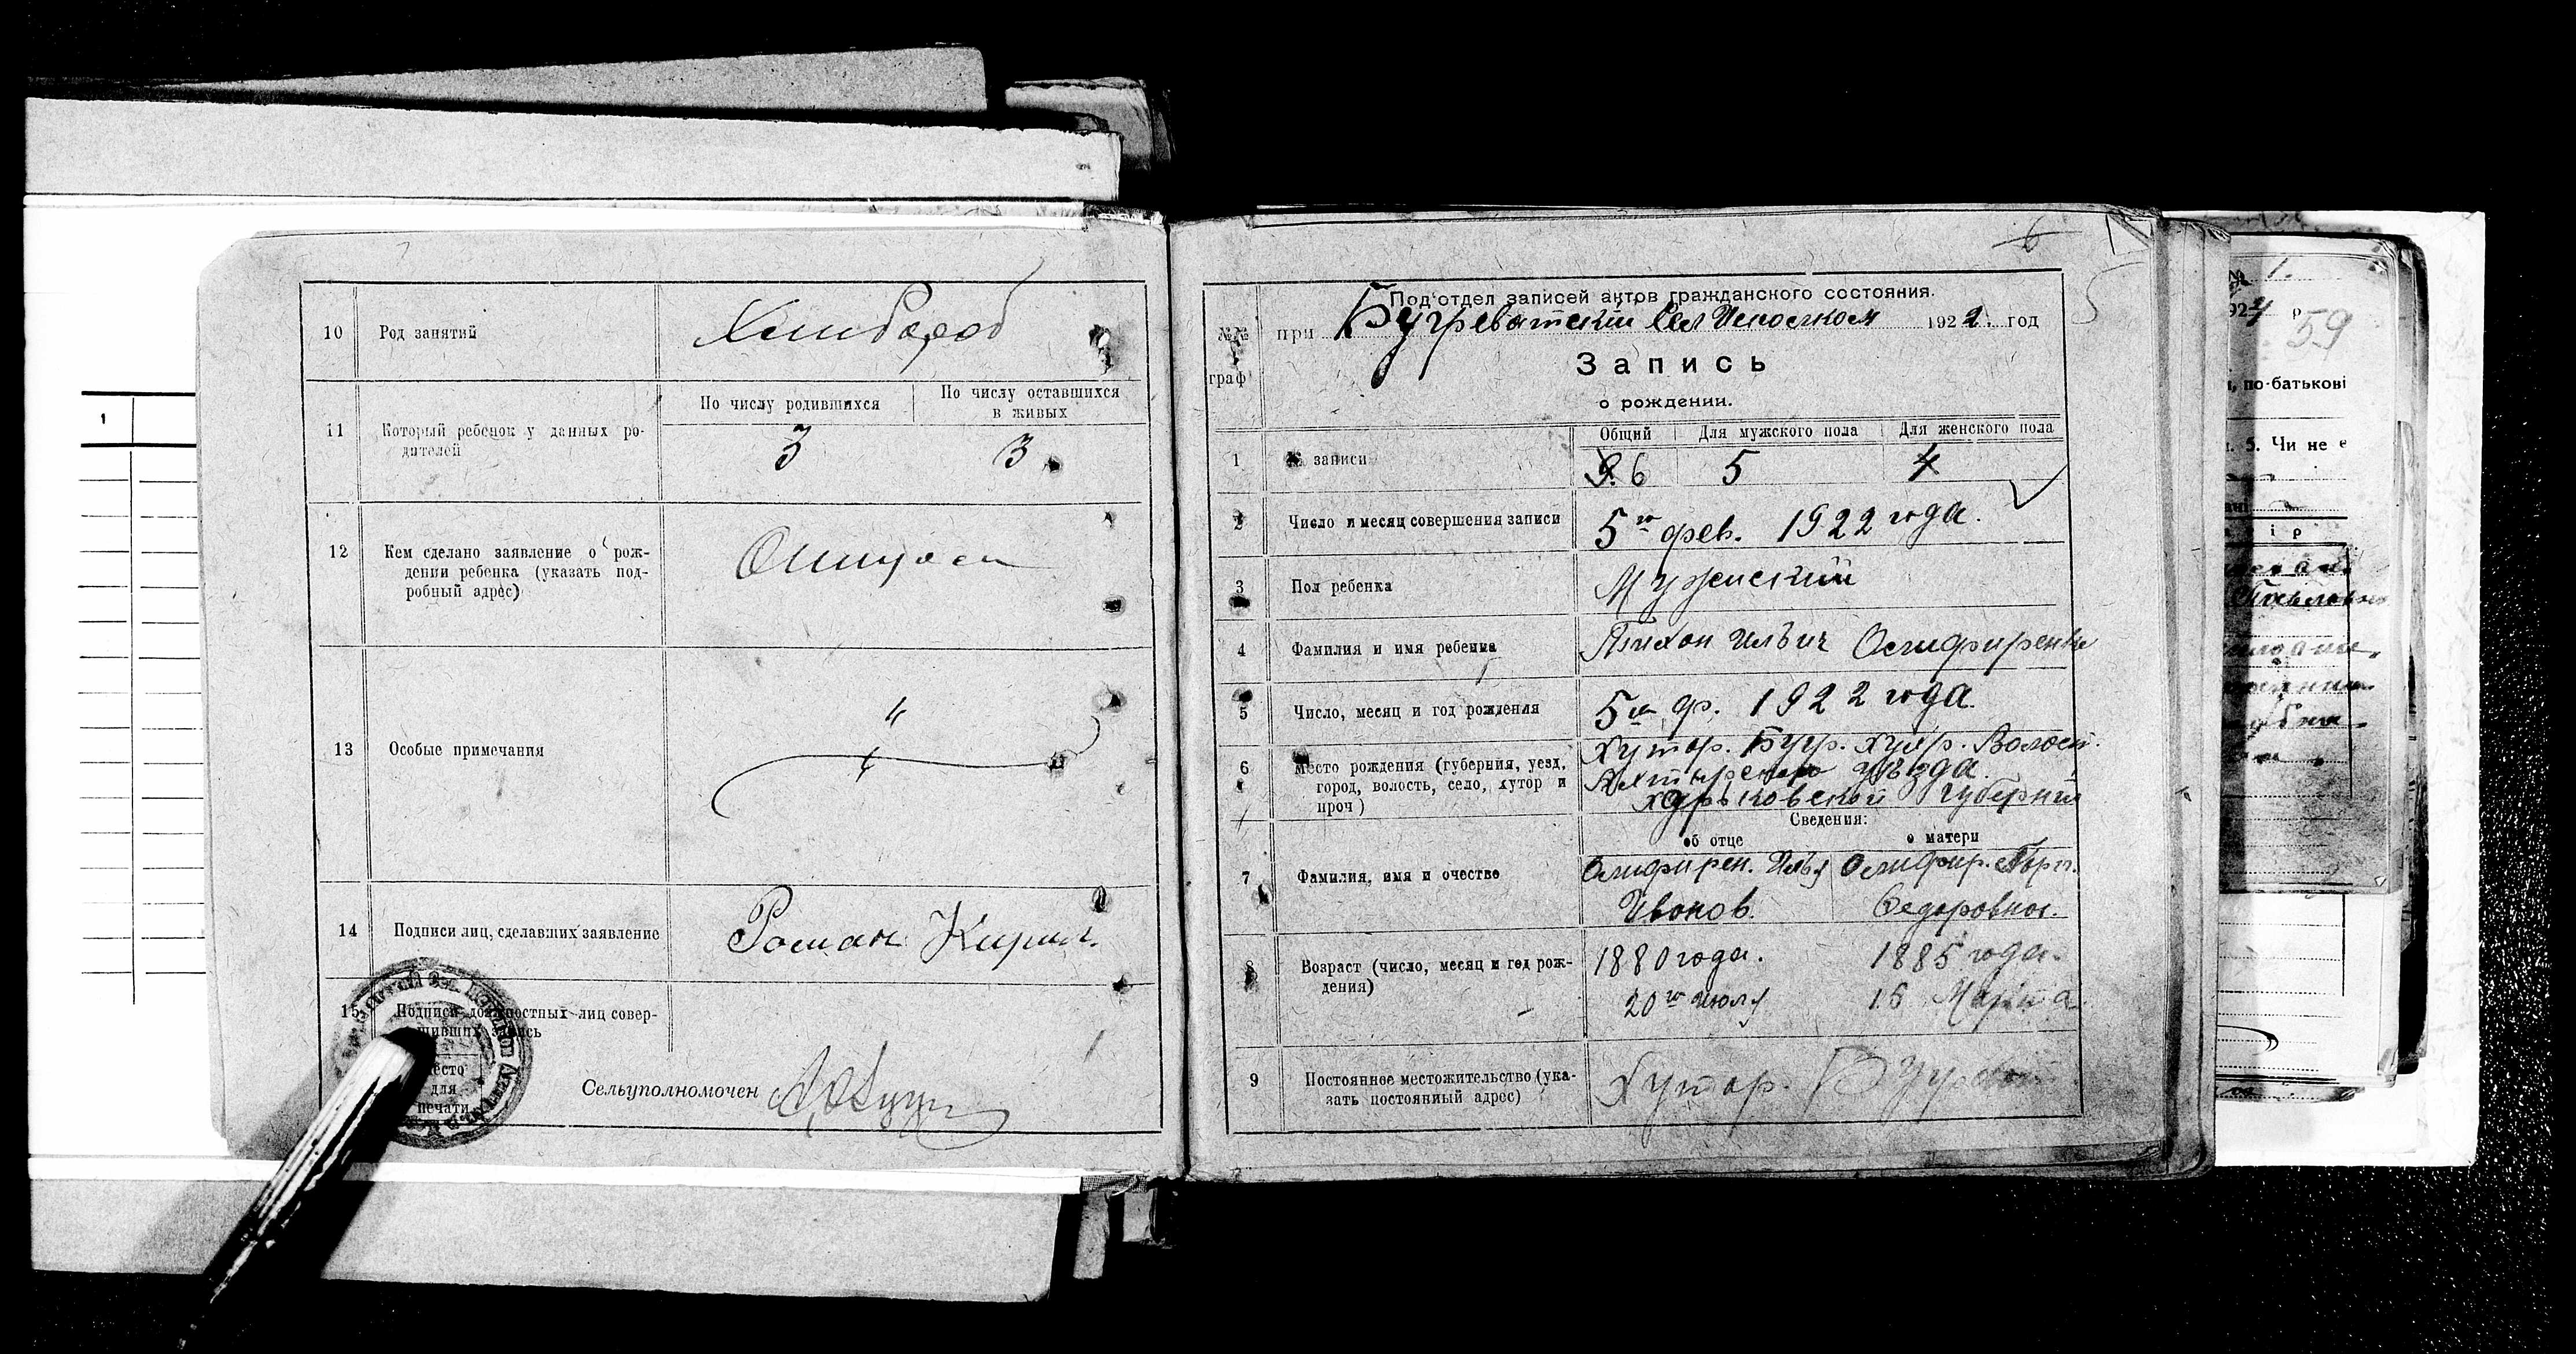 10 Род занятий Хлибороб
11 Который ребенок у данных ро-
дителей
По числу родившихся
По числу оставшихся
в живых
3 3
12 Кем сделано заявление о рож-
дении ребенка (указать под-
робный адрес)
13 Особые примечания
14 Подписи лиц, сделавших заявление Роман Кирил.
15 Подписи должностных лиц совер-
шивших запись
место
для
печати
Сельуполномочен
6
5
Под'отдел записей актов гражданского состояния.
при Бугреватским Сел Исполком 1922. год
№№
граф
Запись
о рождении.
Общий Для мужского пола Для женского пола
1 № записи 9. 6 5 4
2 Число и месяц совершения записи 5го фев. 1922 года.
3 Пол ребенка Мужеский
4 Фамилия и имя ребенка Тихон Ильич
5 Число, месяц и год рождения 5го ф. 1922 года.
6 Место рождения (губерния, уезд,
город, волость, село, хутор и
проч)
Хутор. Бугр. хухр. Волост.
Ахтырского уѣзда.
харьковской губернии
Сведения:
об отце о матери
7 Фамилия, имя и очество
Илья
Иванов. Федоровной.
8 Возраст (число, месяц и год рож-
дения)
1880 года. 1885 года.
20го июля 16 Марта
9 Постоянное местожительство (ука-
зать постоянный адрес)
Хутор.
1
1.
1924 р
59
по-батькові
5. Чи не є
і р